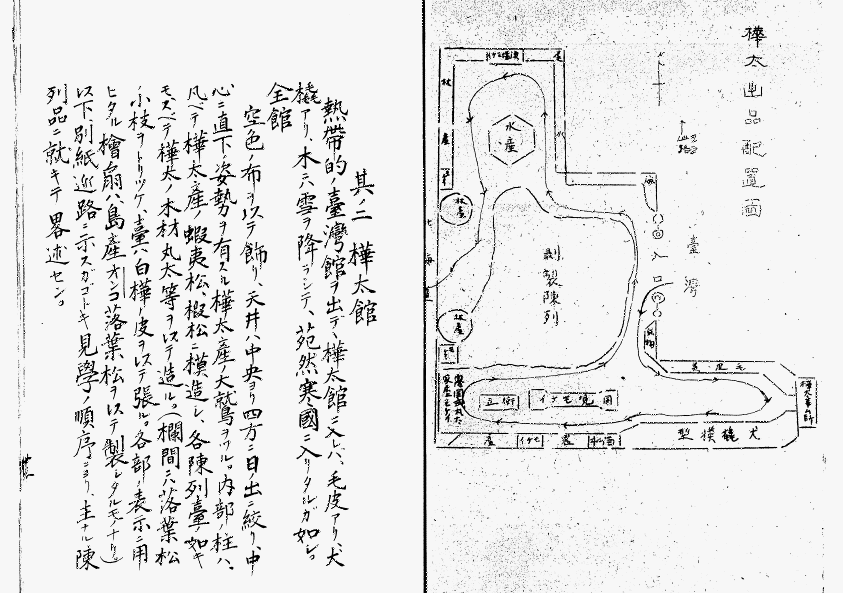 樺太出品配置圖
臺灣
入口
水産
林産
林産
剝製陳列
毛皮
犬橇模型
農産
其ノ二 樺太館
熱帶的ノ臺灣館ヲ出デ、樺太館ニ入レバ、毛皮アリ、犬
橇アリ、木ニハ雪ヲ降ラシテ、宛然寒國ニ入リタルガ如シ。
全館
空色ノ布ヲ以テ飾リ、天井ハ中央ヨリ四方ニ日ノ出ニ絞リ、中
心ニ直下ノ姿勢ヲ有スル樺太産ノ大鷲鳥ヲツル。内部ノ柱ハ、
凡ベテ樺太産ノ蝦夷松、椴松ニ模造シ、各陳列臺ノ如キ
モスベテ樺太ノ木材丸太等ヲ以テ造ル。(欄間ハ落葉松
小枝ヲトリツケ、臺ハ白樺ノ皮ヲ以テ張ル。各部ノ表示ニ用
ヒタル檜扇ハ、島産オンコ落葉松ヲ以テ製シタルモノナリ)
以下、別紙巡路ニ示スガゴトキ見學ノ順序ニヨリ、主ナル陳
列品ニ就キテ畧述セン。